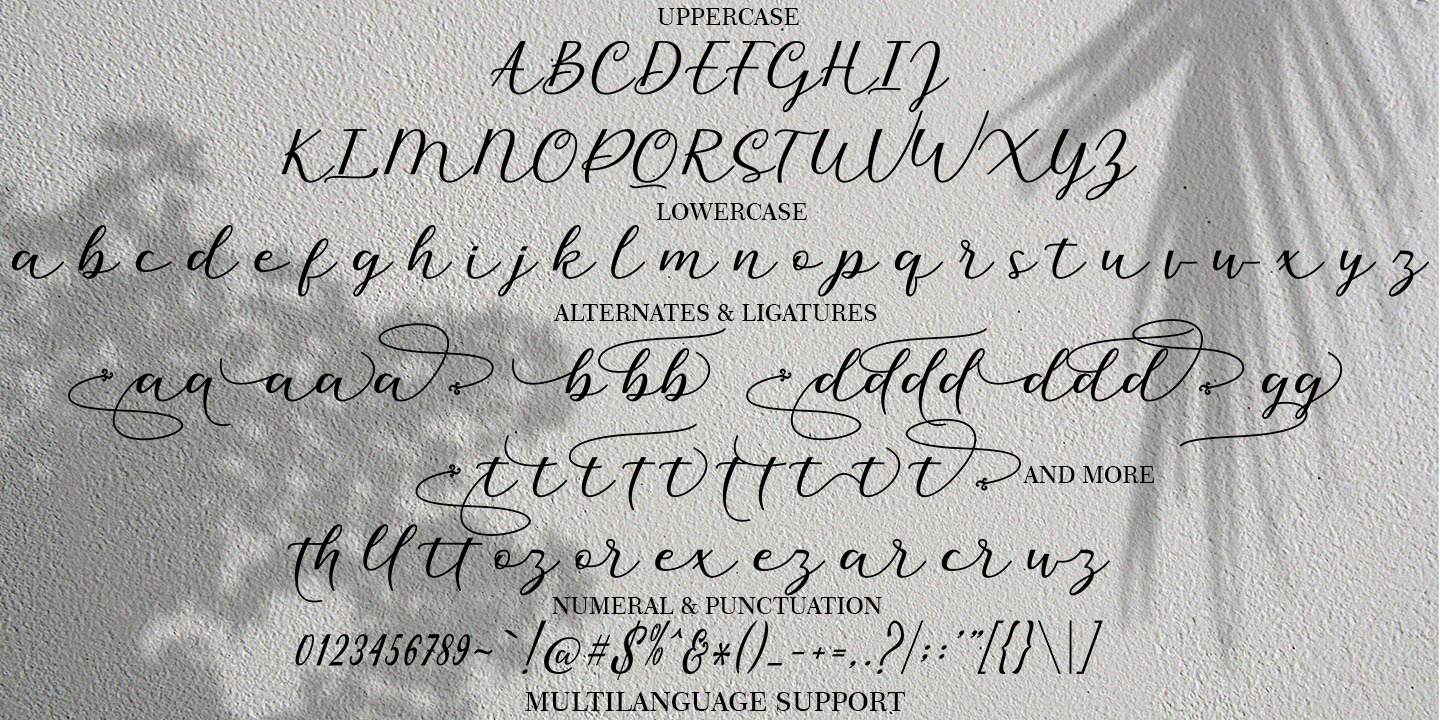 UPPERCASE
ABCDEFGHIJ
KLMNOPQRSTUVWXYZ
LOWERCASE
a b c d e f g h i j k l m n o p q r s t u v w x y z
ALTERNATES & LIGATURES
aa aaa bbb dddd ddd gg
t t t t t t t t t t AND MORE
th ll tt oz or ex ez ar cr wz
NUMERAL & PUNCTUATION
0123456789~`!@#$%^&*()_-+=,.?/;:'"[{}\|]
MULTILANGUAGE SUPPORT